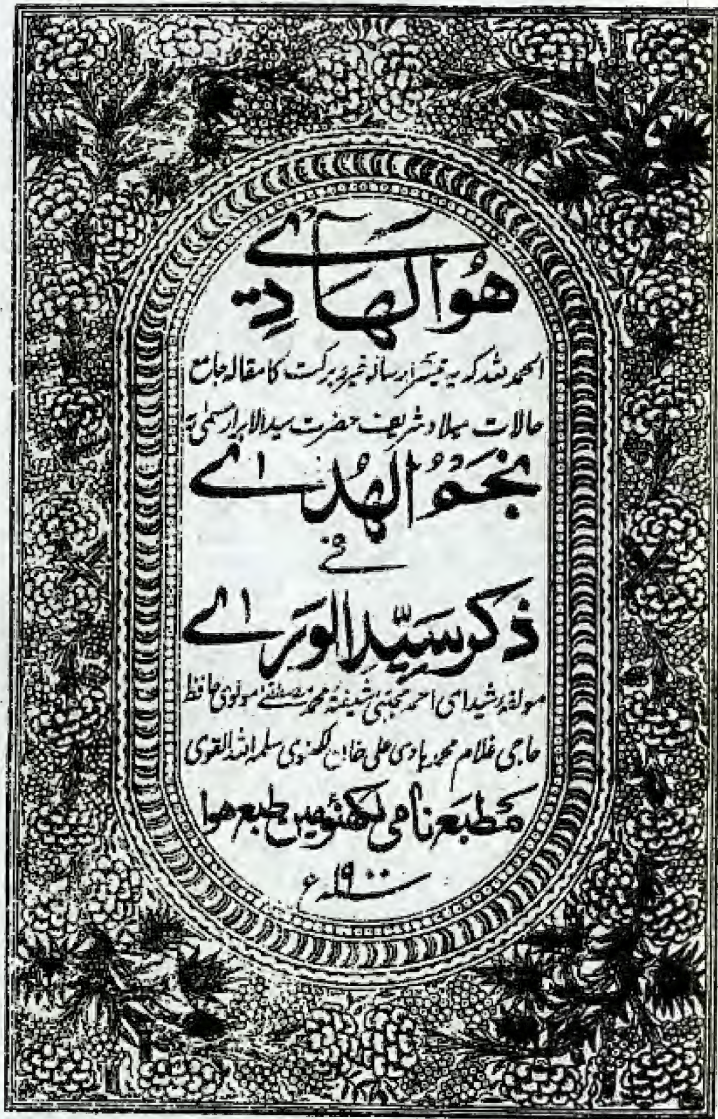 هُوالهَادِی
الحمد للہ کہ یہ تیسرا رسالہ خیر و برکت کا مقالہ جامع
حالات میلاد شریف حضرت سید الابرار مسمٰی بہ
نجمُ الهُدٰے
فے
ذکر سَیّدِ الوَرٰے
مولفۂ شیدای احمد مجتبیٰ شیفتۂ محمد مصطفےٰ مولوی حافظ
حاجی غلام محمد ہادی علی خان لکھنوی سلمہ اللہ القوی
مَطبَع نامی لکھنؤ میں طبع ہوا
سنہ ۱۹۰۰ ع